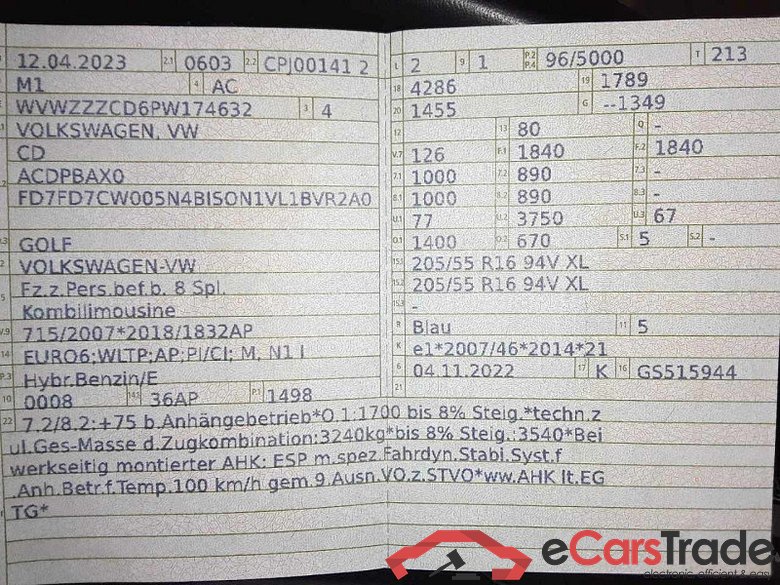 12.04.2023 2.1 0603 2.2 CPJ00141 2
M1 4 AC
WVWZZZCD6PW174632 3 4
VOLKSWAGEN, VW
CD
ACDPBAX0
FD7FD7CW005N4BISON1VL1BVR2A0
GOLF
VOLKSWAGEN-VW
Fz.z.Pers.bef.b. 8 Spl.
Kombilimousine
V.9 715/2007*2018/1832AP
14 EURO6;WLTP;AP;PI/CI; M, N1 I
P.3 Hybr.Benzin/E
10 0008 14.1 36AP P.1 1498
L 2 9 1 P.2 P.4 96/5000 T 213
18 4286 19 1789
20 1455 G --1349
12 13 80 Q -
V.7 126 F.1 1840 F.2 1840
7.1 1000 7.2 890 7.3 -
8.1 1000 8.2 890 8.3 -
U.1 77 U.2 3750 U.3 67
O.1 1400 O.2 670 S.1 5 S.2 -
15.1 205/55 R16 94V XL
15.2 205/55 R16 94V XL
15.3 -
R Blau 11 5
K e1*2007/46*2014*21
6 04.11.2022 17 K 16 GS515944
21
22 7.2/8.2:+75 b.Anhängebetrieb*O.1:1700 bis 8% Steig.*techn.z
ul.Ges-Masse d.Zugkombination:3240kg*bis 8% Steig.:3540*Bei
werkseitig montierter AHK: ESP m.spez.Fahrdyn.Stabi.Syst.f
.Anh.Betr.f.Temp.100 km/h gem.9.Ausn.VO.z.STVO*ww.AHK lt.EG
TG*
eCarsTrade
electronic, efficient & easy